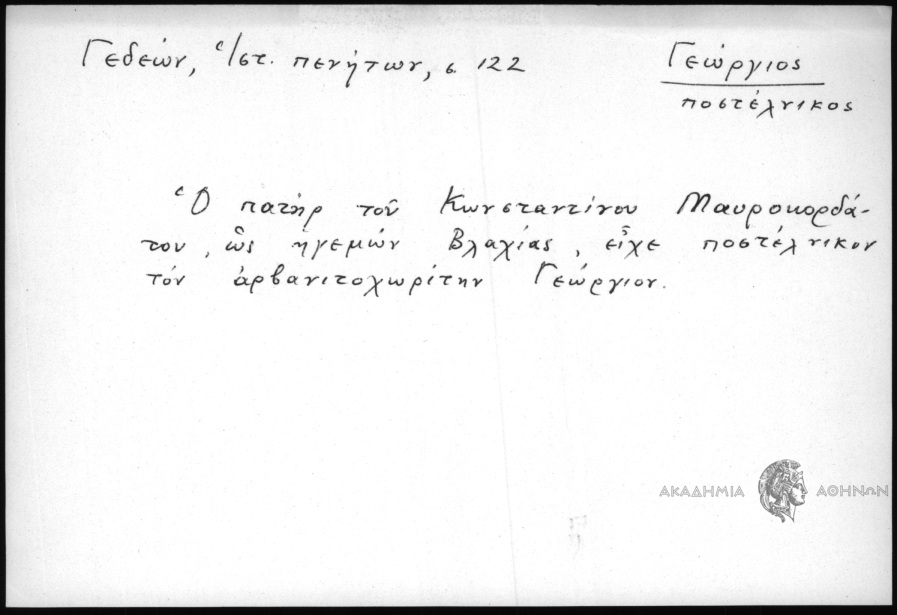 Γεδεών, Ἱστ. πενήτων, σ. 122
Γεώργιος
ποστέλνικος
Ὁ πατὴρ τοῦ Κωνσταντίνου Μαυροκορδά-
του, ὡς ἡγεμών Βλαχίας, εἶχε ποστέλνικον
τόν ἀρβανιτοχωρίτην Γεώργιον.
ΑΚΑΔΗΜΙΑ ΑΘΗΝΩΝ